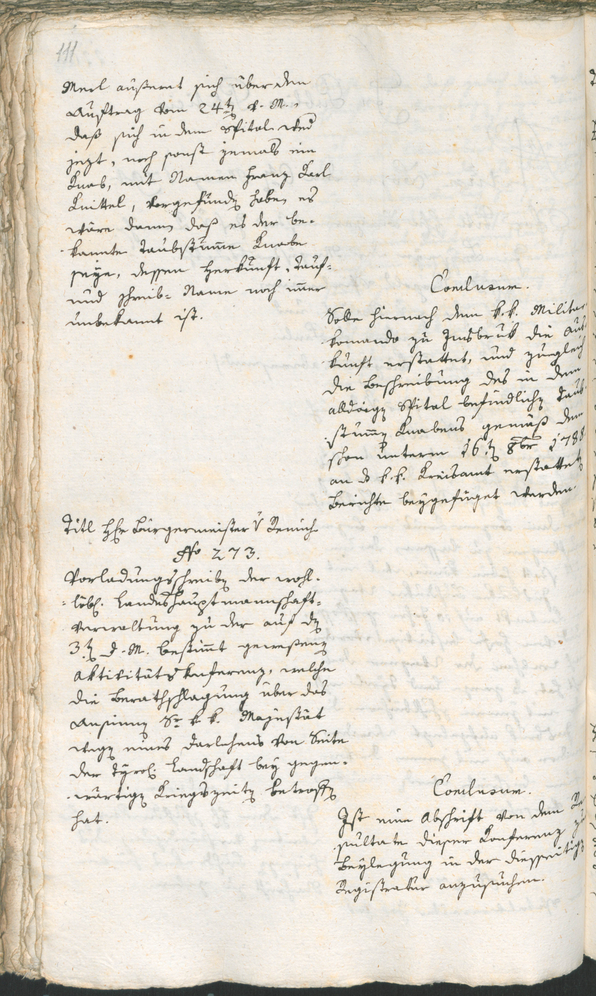 111
Merl äußeret sich über den
Auftrag vom 24ten d. M.,
daß sich in dem Spital weder
jezt, noch sonst jemals ein
Knab, mit Namen Franz Karl
Knittel, vorgefunden habe, es
wäre dann, daß es der be-
kannte taubstumme Knabe
seye, dessen Herkunft, Tauf-
und Schreib-Name noch immer
unbekannt ist.
Conclusum.
Solle hiernach dem k. k. Militär
komando zu Innsbruk die Aus
kunft erstattet, und zugleich
die Beschreibung des in dem
alldorigen Spital befindlichen taub
stummen Knabens gemäß dem
schon unterm 16ten 8ber 178
an das k. k. Kreisamt erstatteten
Berichte beygefüget werden.
Titl Hr. Bürgermeister v
No 273.
Vorladungsschreiben der wohl-
löbl. Landeshauptmannschaft-
Verwaltung zu der auf den
3ten d. M. bestimmt gewesenen
Aktivitäts Konferenz, welche
die Berathschlagung über das
Ansinnen Sr k. k. Majestät
wegen eines Darlehens von Seite
der Tyrol. Landschaft bey gegen-
wärtigen Kriegszeiten betroffen
hat.
Conclusum.
Ist eine Abschrift von dem Re
sultate dieser Konferenz zu
Beylegung in der diesseitigen
Registratur anzusuchen.